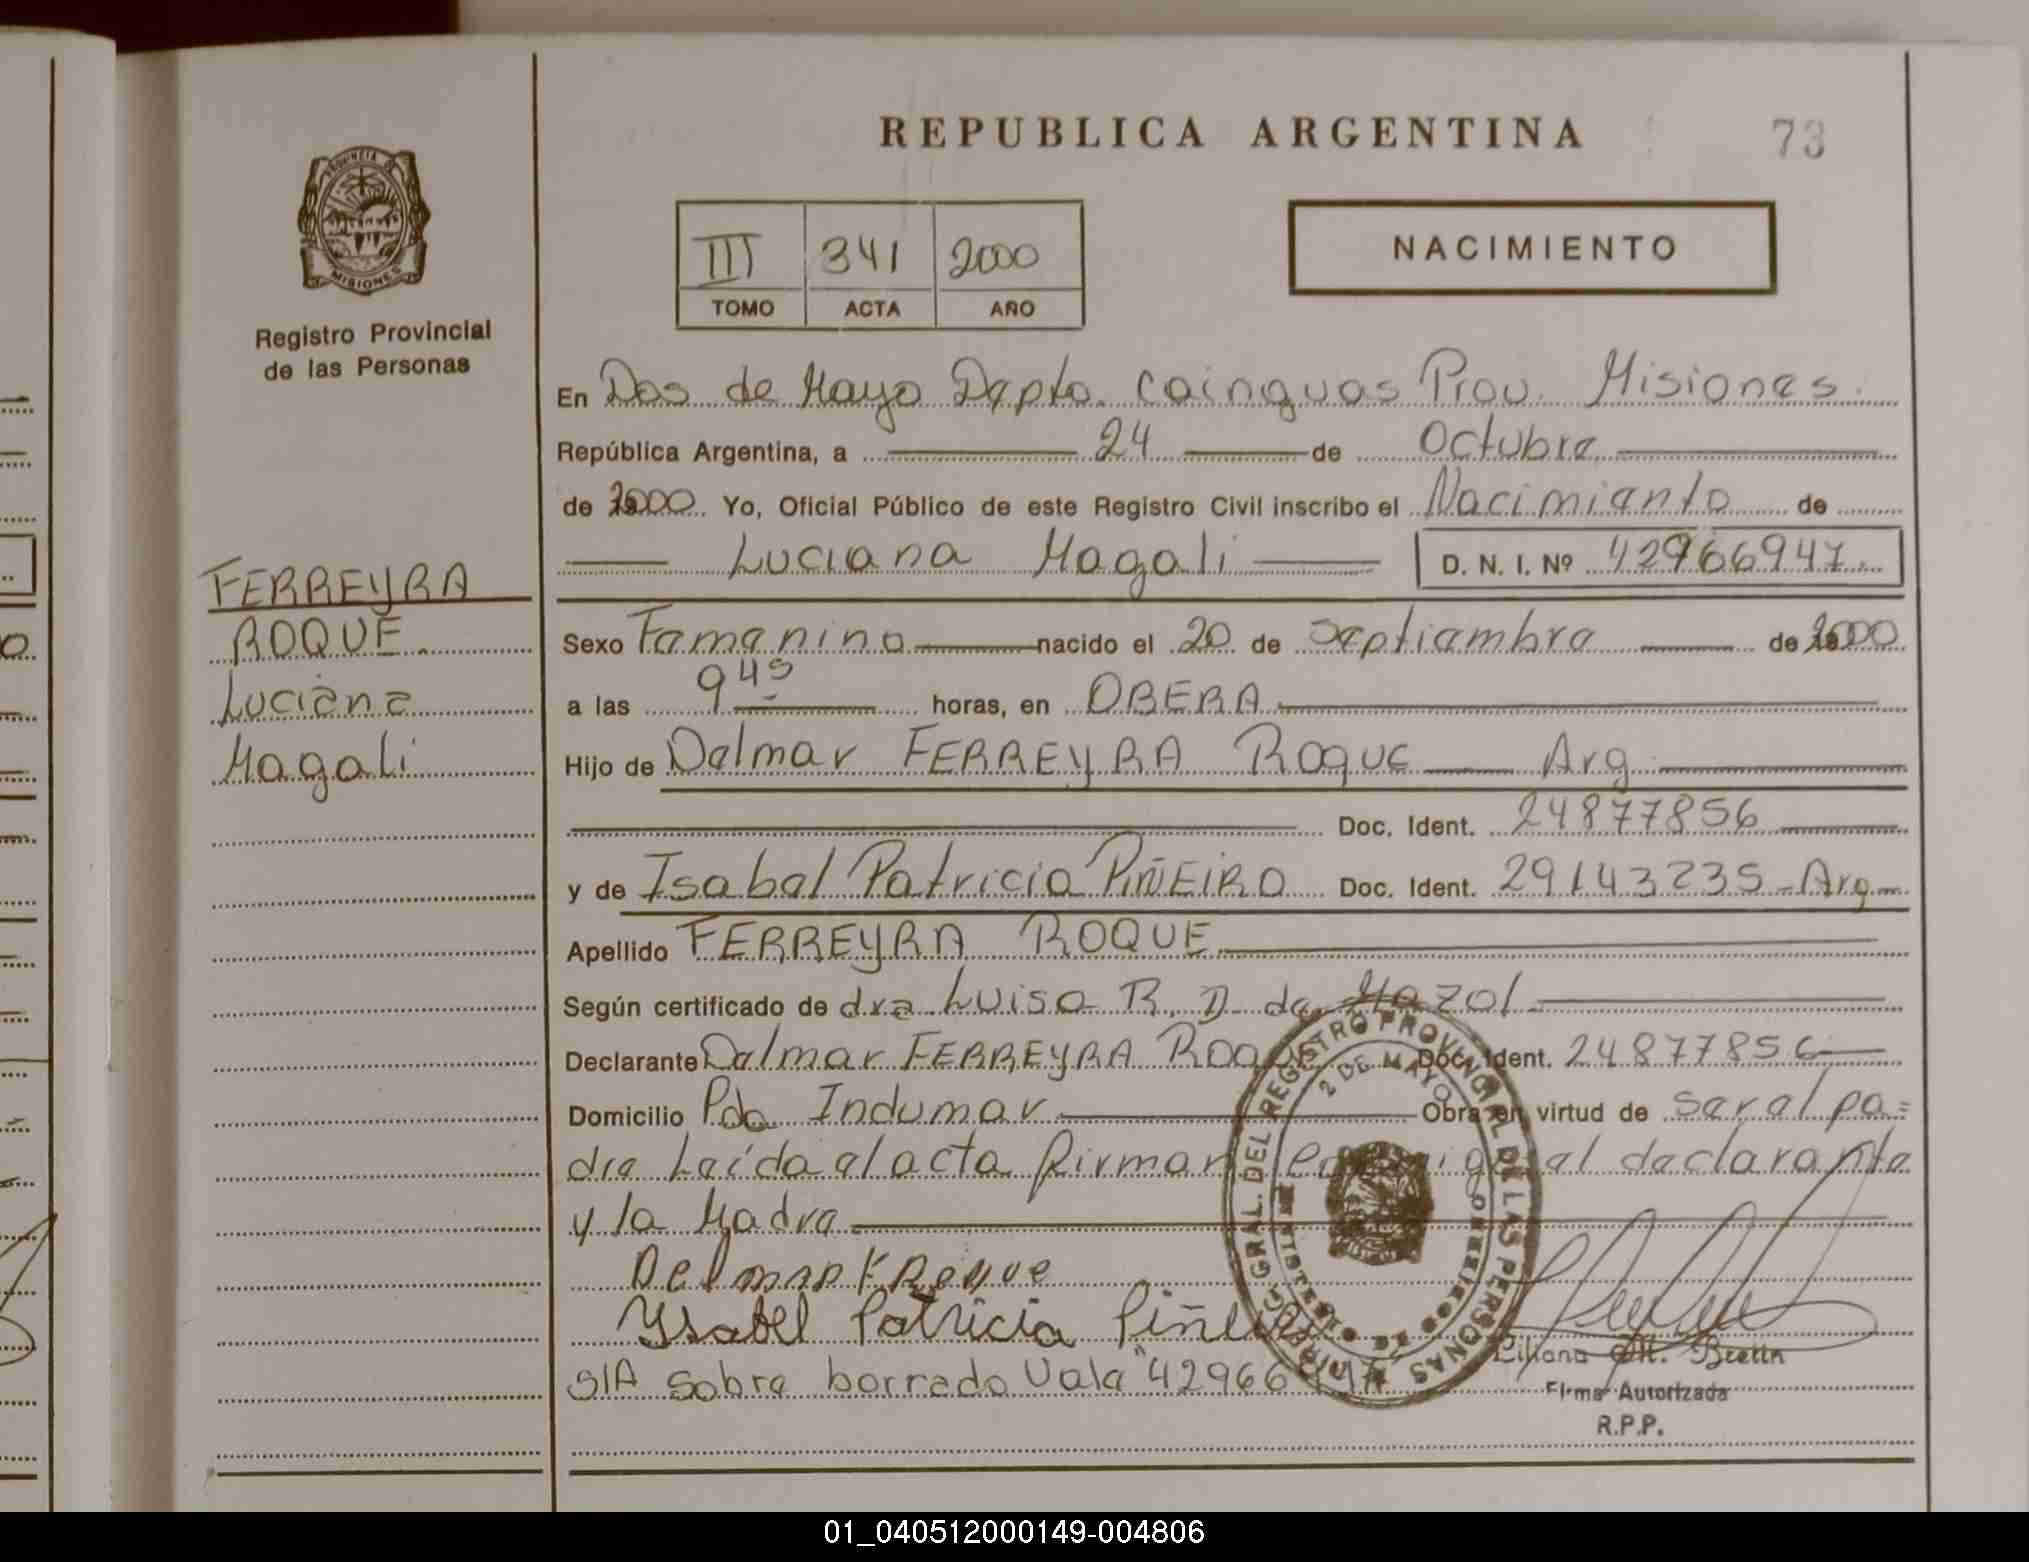 REPUBLICA ARGENTINA
73
PROVINCIA DE MISIONES
Registro Provincial
de las Personas
III 341 2000
TOMO ACTA AÑO
NACIMIENTO
En Dos de Mayo Depto. Cainguas Prov. Misiones.
República Argentina, a 24 de Octubre
de 2000 Yo, Oficial Público de este Registro Civil inscribo el Nacimiento de
Luciana Magali D. N. I. Nº 42966947
FERREYRA
ROQUE.
Luciana
Magali
Sexo Femenino nacido el 20 de Septiembre de 2000
a las 9 45 horas, en OBERA
Hijo de Delmar FERREYRA ROQUE Arg
Doc. Ident. 24877856
y de Isabel Patricia PIÑEIRO Doc. Ident. 29143235 - Arg
Apellido FERREYRA ROQUE
Según certificado de dra Luisa R. D. de Mazol
Declarante Delmar FERREYRA ROQUE Doc. Ident. 24877856
Domicilio Pdo Indumar Obra en virtud de ser al pa=
dre Leída el acta firman el declarante
y la Madre
Delmar F Roque
Ysabel Patricia Piñeiro
S/A sobre borrado Vale "42966
Liliana M.
Firma Autorizada
R.P.P.
DIREC. GRAL. DEL REGISTRO PROVINCIAL DE LAS PERSONAS
2 DE MAYO
01_040512000149-004806